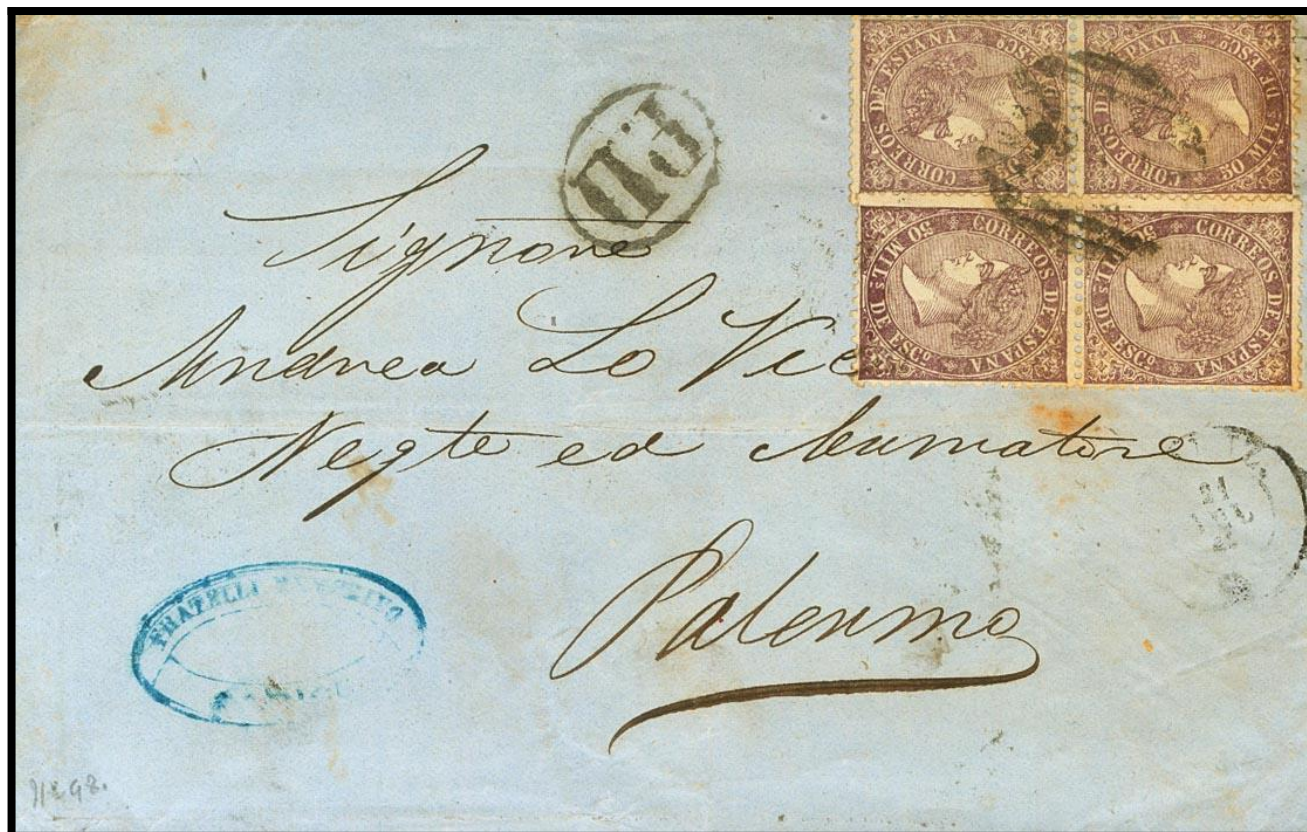 CORREOS DE ESPAÑA
50 MIL.s DE ESC.o
CORREOS DE ESPAÑA
50 MIL.s DE ESC.o
CORREOS DE ESPAÑA
50 MIL.s DE ESC.o
CORREOS DE ESPAÑA
50 MIL.s DE ESC.o
P.D
Signore
Andrea Lo
Negte ed Armatore
Palermo
21
FRATELLI